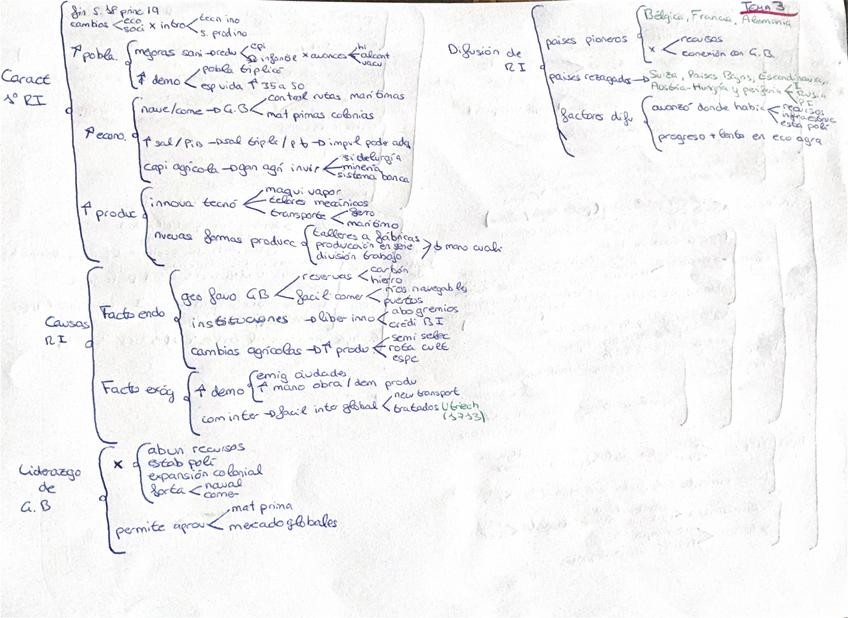 Tema 3
fin s. 18 princ 19
cambios eco soci x intro tecn ino
s. produo
↑ pobla. mejoras sani → redu epi
infantil x avances hi
alcant
vacu
↑ demo pobla triplicó
esp vida ↑ 35 a 50
Caract
1º RI
↑ econo. nave/come → G.B control rutas marítimas
mat primas colonias
↑ sal/PIB → sal triple / pib → impul poder adq
capi agrícola → gan agrí invir siderurgia
minería
sistema banca
↑ produc innova tecnó maqui vapor
telares mecánicos
transporte ferro
marítimo
nuevas formas produce talleres a fábricas
producción en serie
división trabajo
↓ mano cuali
Causas
RI
Facto endo
geo favo GB reservas carbón
hierro
facil comer ríos navegables
puertos
instituciones → liber inno abo gremios
crédi BI
cambios agrícolas → ↑ produ semi selec
rota cult
espe
Facto exóg
↑ demo emig ciudades
↑ mano obra / dem produ
com inter → facil inte global new transport
tratados Utrech
(1713)
Liderazgo
de
G.B
x abun recursos
estab polí
expansión colonial
flota naval
comer
permite aprov mat prima
mercado globales
Difusión de
RI
países pioneros Bélgica, Francia, Alemania
x recursos
conexión con G.B.
países rezagados → Suiza, Países Bajos, Escandinavia,
Austria-Hungría y periferia
I
Rusia
PI
factores difu avanzó donde había recursos
infraestruc
esta polí
progreso + lento en eco agra